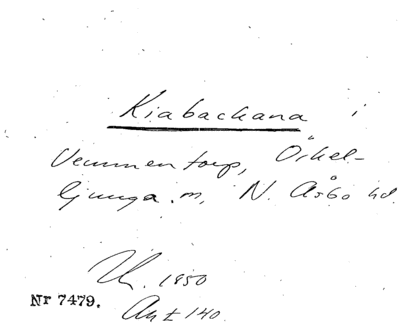 Kiabackana i
Vemmentorp, Örkel-
ljunga.m, N. Åsbo hd.
Uk. 1850
Nr 7479.
Ak I 140.